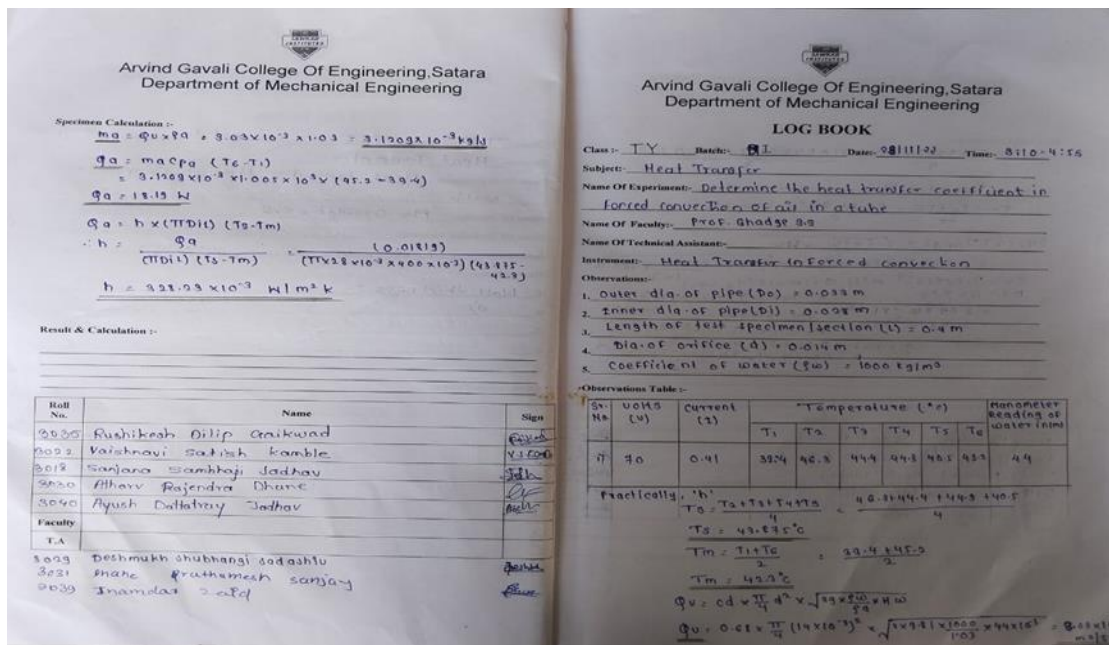 Arvind Gavali College Of Engineering,Satara
Department of Mechanical Engineering
Specimen Calculation :-
ma = Qv x ρa = 3.03x10⁻³ x 1.03 = 3.1209x10⁻³ kg/s
qa = ma Cpa (T6-T1)
= 3.1209x10⁻³ x 1.005 x 10³ x (45.2-39.4)
Qa = 18.19 W
Qa = h x (πDiL) (Ts-Tm)
∴ h = Qa / (πDiL) (Ts-Tm) = (0.01819) / (πx28x10⁻³x400x10⁻³) (43.875-42.3)
h = 328.23 x10⁻³ W/m²k
Result & Calculation :-
Roll No. Name Sign
3035 Rushikesh Dilip Gaikwad
3022 Vaishnavi Satish Kamble
3018 Sanjana Sambhaji Jadhav
3030 Atharv Rajendra Dhane
3040 Ayush Dattatray Jadhav
Faculty
T.A
3029 Deshmukh Shubhangi Sadashiv
3031 Phane Prathamesh Sanjay
3039 Inamdar Zaid
Arvind Gavali College Of Engineering,Satara
Department of Mechanical Engineering
LOG BOOK
Class :- TY Batch:- I Date:- Time:- 3:10 - 4:55
Subject:- Heat Transfer
Name Of Experiment:- Determine the heat transfer coefficient in
forced convection of air in a tube
Name Of Faculty:- Prof. Ghadge
Name Of Technical Assistant:-
Instrument:- Heat Transfer in Forced convection
Observations:-
1. Outer dia. of pipe (Do) = 0.033 m
2. Inner dia. of pipe (Di) = 0.028 m
3. Length of test specimen/section (L) = 0.4 m
4. Dia. of orifice (d) = 0.014 m
5. Coefficient of water (ρw) = 1000 kg/m3
Observations Table :-
Sr. No. Volts (V) Current (I) Temperature (°c) Manometer Reading of water in(m)
T1 T2 T3 T4 T5 T6
70 0.41 39.4 46.3 44.4 44.3 40.5 45.2 44
Practically, 'h'
Ts = T2+T3+T4+T5 / 4 = 46.3+44.4+44.3+40.5 / 4
Ts = 43.875°c
Tm = T1+T6 / 2 = 39.4+45.2 / 2
Tm = 42.3°c
Qv = cd x π/4 d² x √2g x ρw/ρa x Hw
Qv = 0.68 x π/4 (14x10⁻³)² x √2x9.81x 1000/1.03 x44x10⁻³ =